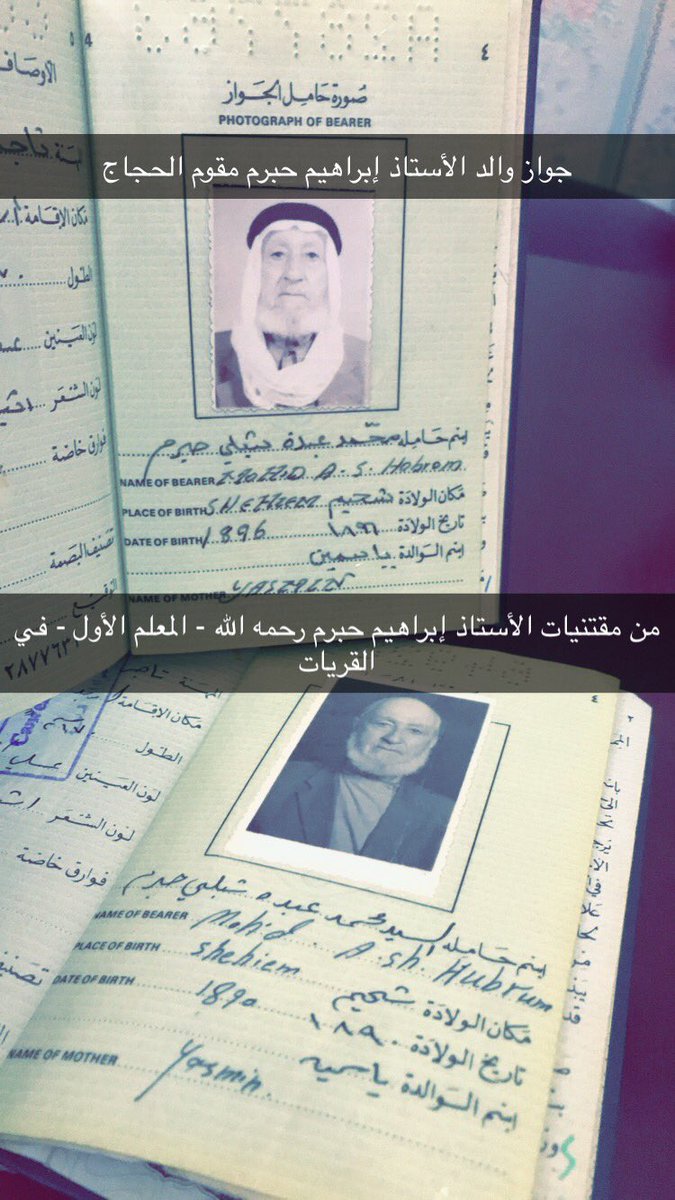 ٤
صورة حامل الجواز
PHOTOGRAPH OF BEARER
جواز والد الأستاذ إبراهيم حبرم مقوم الحجاج
اسم حامله محمد عبدة شبلي حبرم
NAME OF BEARER MOHD A-S-Habrem
مكان الولادة شحيم
PLACE OF BIRTH SHEHIEM
تاريخ الولادة ١٨٩٦
DATE OF BIRTH 1896
اسم الوالدة ياسمين
NAME OF MOTHER
الأوصاف
مكان الإقامة
الطول
لون العينين
لون الشعر
فوارق خاصة
تصنيف البصمة
التوقيع
من مقتنيات الأستاذ إبراهيم حبرم رحمه الله - المعلم الأول - في
القريات
٤
اسم حامله السيد محمد عبده شبلي حبرم
NAME OF BEARER Mohd. A. sh. Hubrum
مكان الولادة شحيم
PLACE OF BIRTH shehiem
تاريخ الولادة ١٨٩٠
DATE OF BIRTH 1890
اسم الوالدة
NAME OF MOTHER Yasmin
المهنة
مكان الإقامة
الطول
لون العينين عسلي
لون الشعر
فوارق خاصة